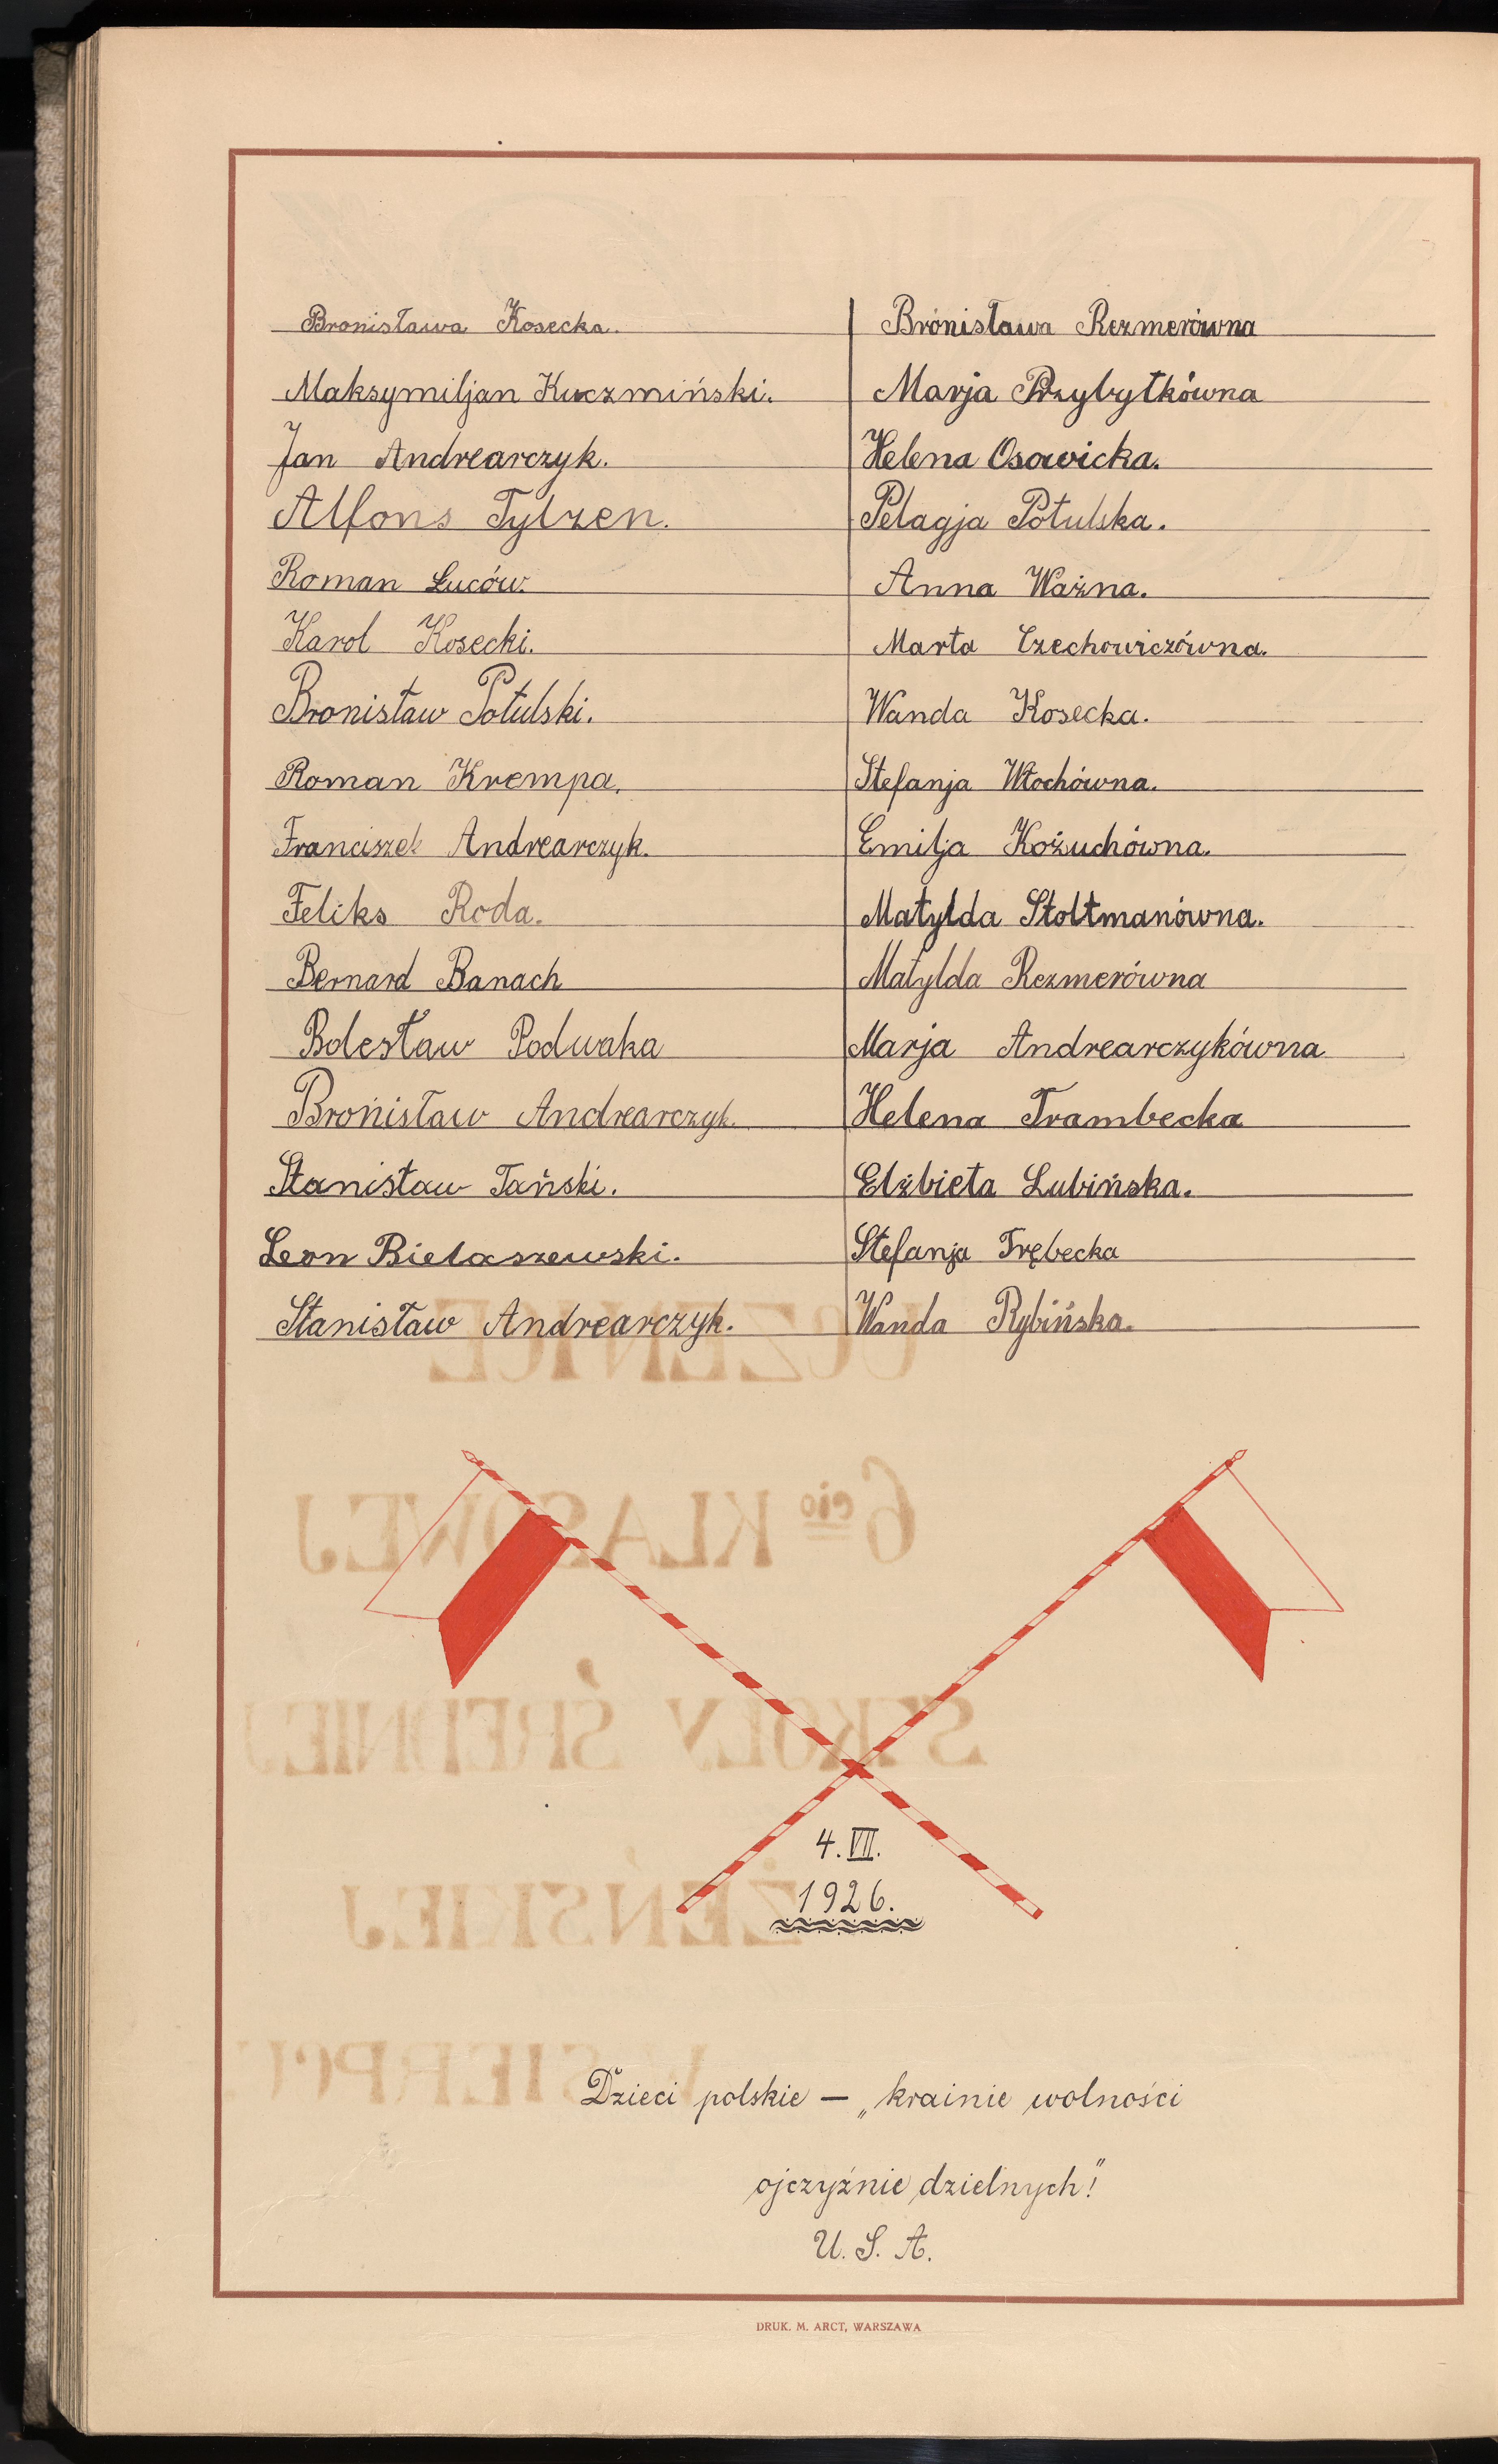 Bronisława Kosecka.
Maksymiljan Kuczmiński.
Jan Andrearczyk.
Alfons Tylzen.
Roman Luców.
Karol Kosecki.
Bronisław Potulski.
Roman Krempa.
Franciszek Andrearczyk.
Feliks Roda.
Bernard Banach
Bolesław Podwaka
Bronisław Andrearczyk.
Stanisław Tański.
Leon Bielaszewski.
Stanisław Andrearczyk.
Bronisława Rezmerówna
Marja Przybytkówna
Helena Osowicka.
Pelagja Potulska.
Anna Ważna.
Marta Czechowiczówna.
Wanda Kosecka.
Stefanja Włochówna.
Emilja Kożuchówna.
Matylda Stoltmanówna.
Matylda Rezmerówna
Marja Andrearczykówna
Helena Trambecka
Elżbieta Lubińska.
Stefanja Trębecka
Wanda Rybińska.
4. VII.
1926.
Dzieci polskie — „krainie wolności
ojczyźnie dzielnych!"
U. S. A.
DRUK. M. ARCT, WARSZAWA